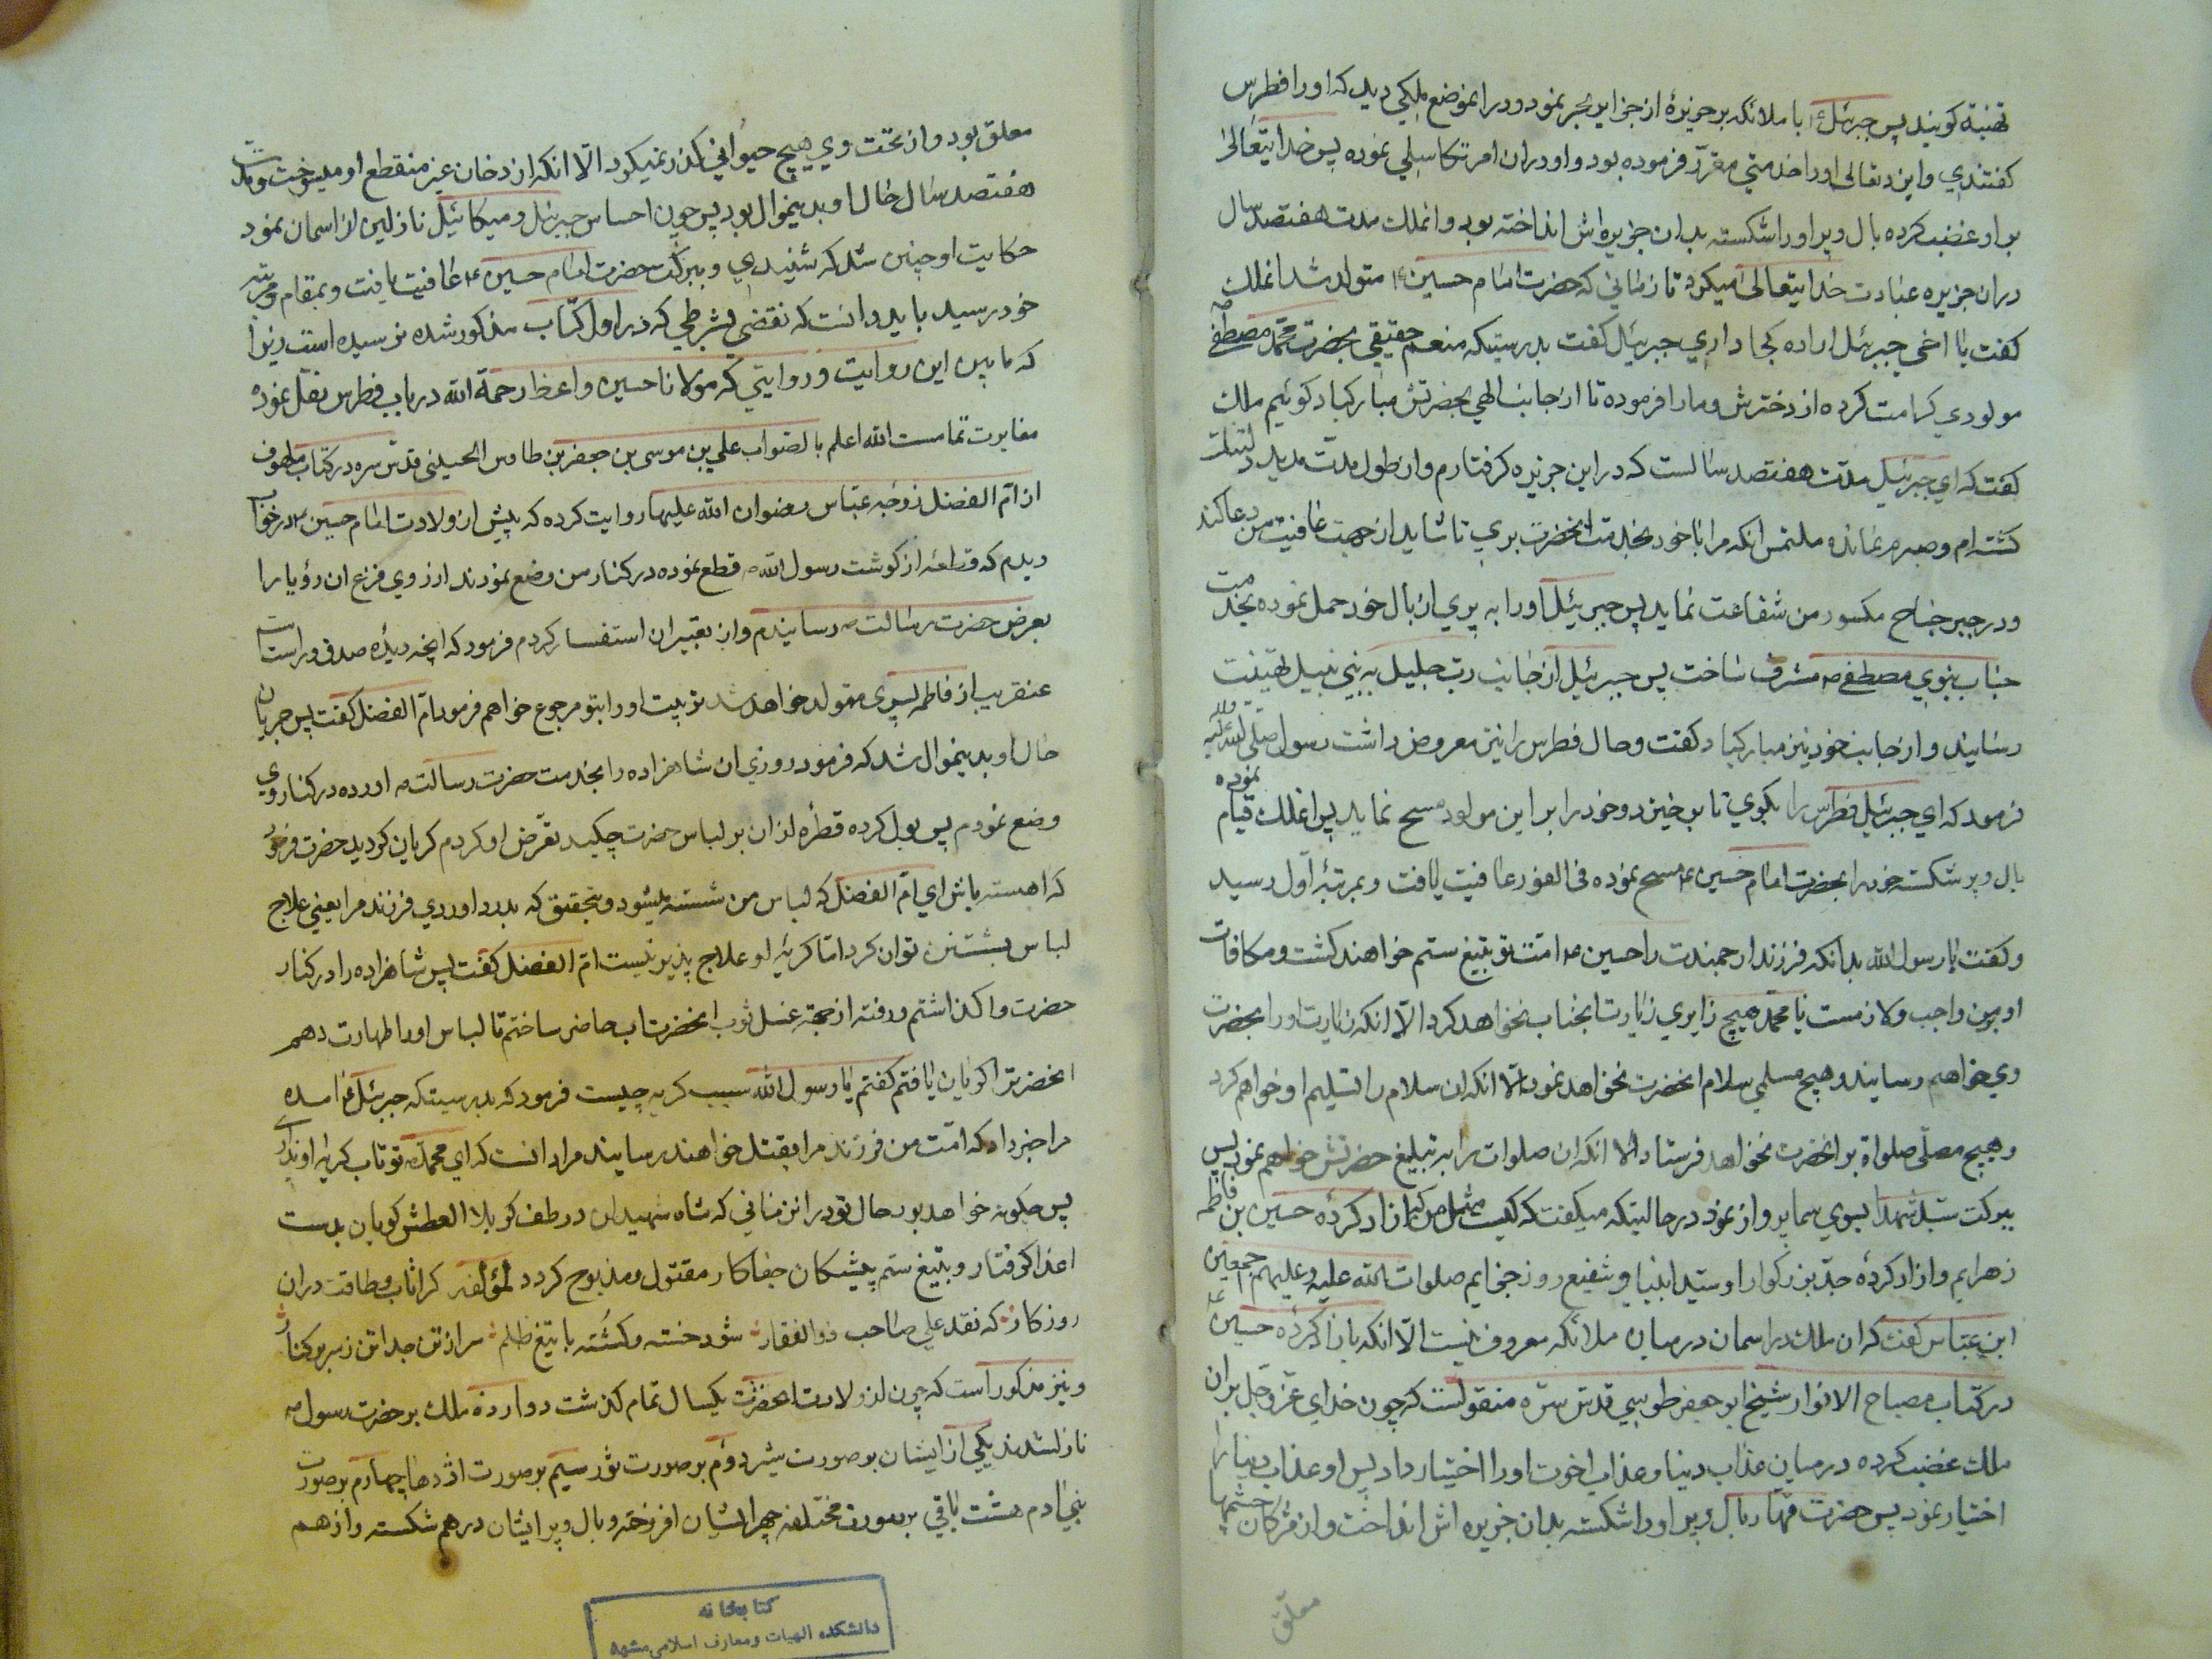 تهنیة کویند پس جبرئیل ع با ملائکه بر جزیرهٔ از جزایر بحر نمود و در انموضع ملکی دید که او را فطرس
کفتندی و ایزد تعالی او را خدمتی مقرر فرموده بود و او در ان امر تکاسلی نموده پس خدایتعالی
بر او غضب کرده بال و پر او را شکسته بدان جزیره‌اش انداخته بود و انملک مدت هفتصد سال
دران جزیره عبادت خدایتعالی میکرد تا زمانی که حضرت امام حسین ع متولد شد انملک
کفت یا اخی جبرئیل اراده کجا داری جبرئیل کفت بدرستیکه منعم حقیقی بحضرت محمد مصطفی ص
مولودی کرامت کرده از دخترش و ما را فرموده تا از جانب الهی بحضرتش مبارکباد کوئیم ملک
کفت که ای جبرئیل مدت هفتصد سالست که در این جزیره کرفتارم و از طول مدت مدید دلتنک
کشته‌ام و صبرم نمانده ملتمس انکه مرا با خود بخدمت انحضرت بری تا شاید از جهت عافیت من دعا کند
و در جبر جناح مکسور من شفاعت نماید پس جبرئیل او را به پری از بال خود حمل نموده بخدمت
جناب نبوی مصطفی ص مشرف ساخت پس جبرئیل از جانب رب جلیل به نبی نبیل تهنیت
رسانید و از جانب خود نیز مبارکباد کفت و حال فطرس را نیز معروض داشت رسول صلی الله علیه واله
فرمود که ای جبرئیل فطرس را بکوی تا بر خیزد و خود را بر این مولود مسح نماید پس انملک قیام نموده
بال و پر شکسته خود را بحضرت امام حسین ع مسح نموده فی الفور عافیت یافت و بمرتبهٔ اول رسید
و کفت یا رسول الله بدانکه فرزند ارجمندت را حسین ع امت تو بتیغ ستم خواهند کشت و مکافات
او بر من واجب و لازمست یا محمد هیچ زایری زیارت انجناب نخواهد کرد الا انکه زیارت او را بحضرت
وی خواهم رسانید و هیچ مسلمی سلام انحضرت نخواهد نمود الا انکه ان سلام را تسلیم او خواهم کرد
و هیچ مصلی صلواة بر انحضرت نخواهد فرستاد الا انکه ان صلوات را به تبلیغ حضرتش خواهم نمود پس
ببرکت سید شهدا بسوی سما پرواز نمود در حالتیکه میکفت که کیست مثل من که ازاد کردهٔ حسین بن فاطمه
زهرایم و ازاد کردهٔ جد بزرکوار او سید انبیا و شفیع روز جزایم صلوات الله علیه و علیهم اجمعین
ابن عباس کفت که ان ملک در اسمان در میان ملائکه معروف نیست الا انکه بازاد کرده حسین ع
در کتاب مصباح الانوار شیخ ابو جعفر طوسی قدس سره منقولست که چون خدای عز و جل بران
ملک غضب کرده در میان عذاب دنیا و عذاب اخرت او را اختیار داد پس او عذاب دنیا را
اختیار نمود پس حضرت قهار بال و پر او را شکسته بدان جزیره اش انداخت و از مژکان چشمها
معلق
معلق بود و از تحت وی هیچ حیوانی کذر نمیکرد الا انکه از دخان غیر منقطع او میسوخت و مدت
هفتصد سال حال او بدینمنوال بود پس چون احساس جبرئیل و میکائیل نازلین از اسمان نمود
حکایت او چنین شد که شنیدی و ببرکت حضرت امام حسین ع عافیت یافت و بمقام و مرتبه
خود رسید باید دانست که نقضی بشرطی که در اول کتاب مذکور شده نرسیده است زیرا
که ما بین این روایت و روایتی که مولانا حسین واعظ رحمة الله در باب فطرس نقل نموده
مغایرت تمامست الله اعلم بالصواب علی بن موسی بن جعفر بن طاوس الحسینی قدس سره در کتاب ملهوف
از ام الفضل زوجه عباس رضوان الله علیها روایت کرده که پیش از ولادت امام حسین ع در خواب
دیدم که قطعهٔ از کوشت رسول الله ص قطع نموده در کنار من وضع نمودند از روی فزع ان رؤیا را
بعرض حضرت رسالت ص رسانیدم و از تعبیر ان استفسار کردم فرمود که انچه دیدهٔ صدق و راست است
عنقریب از فاطمه پسری متولد خواهد شد تربیت او را بتو مرجوع خواهم فرمود ام الفضل کفت پس جریان
حال او بدینمنوال شد که فرمود روزی ان شاهزاده را بخدمت حضرت رسالت ص اورده در کنار وی
وضع نمودم پس بول کرده قطرهٔ از ان بر لباس حضرت چکید تعرض او کردم کریان کردید حضرت فرمود
که اهسته باش ای ام الفضل که لباس من شسته میشود و بتحقیق که بدرد اوردی فرزند مرا یعنی علاج
لباس بشستن توان کرد اما کریه او علاج پذیر نیست ام الفضل کفت پس شاهزاده را در کنار
حضرت وا کذاشتم و رفته از جهة غسل ثوب انحضرت اب حاضر ساختم تا لباس او را طهارت دهم
انحضرت را کریان یافتم کفتم یا رسول الله سبب کریه چیست فرمود که بدرستیکه جبرئیل ع امده
مرا خبر داد که امت من فرزند مرا بقتل خواهند رسانید مراد انست که ای محمد ص تو تاب کریه او نداری
پس چکونه خواهد بود حال تو در ان زمانی که شاه شهیدان در طف کربلا العطش کویان بدست
اعدا کرفتار و بتیغ ستم پیشکان جفا کار مقتول و مذبوح کردد لمؤلفه کرا تاب و طاقت دران
روزکار که نقد علی صاحب ذوالفقار شود خسته و کشته با تیغ ظلم سر از تن جدا تن ز سر بر کنار
و نیز مذکور است که چون از ولادت انحضرت یکسال تمام کذشت دوازده ملک بر حضرت رسول ص
نازلشدند یکی از ایشان بر صورت شیر دوم بر صورت ثور سیم بر صورت اژدها چهارم بر صورت
بنی ادم هشت باقی بر صورت مختلفه چهرها شان افروخته و بال و پر ایشان درهم شکسته و از هم
کتابخانه
دانشکده الهیات و معارف اسلامی مشهد